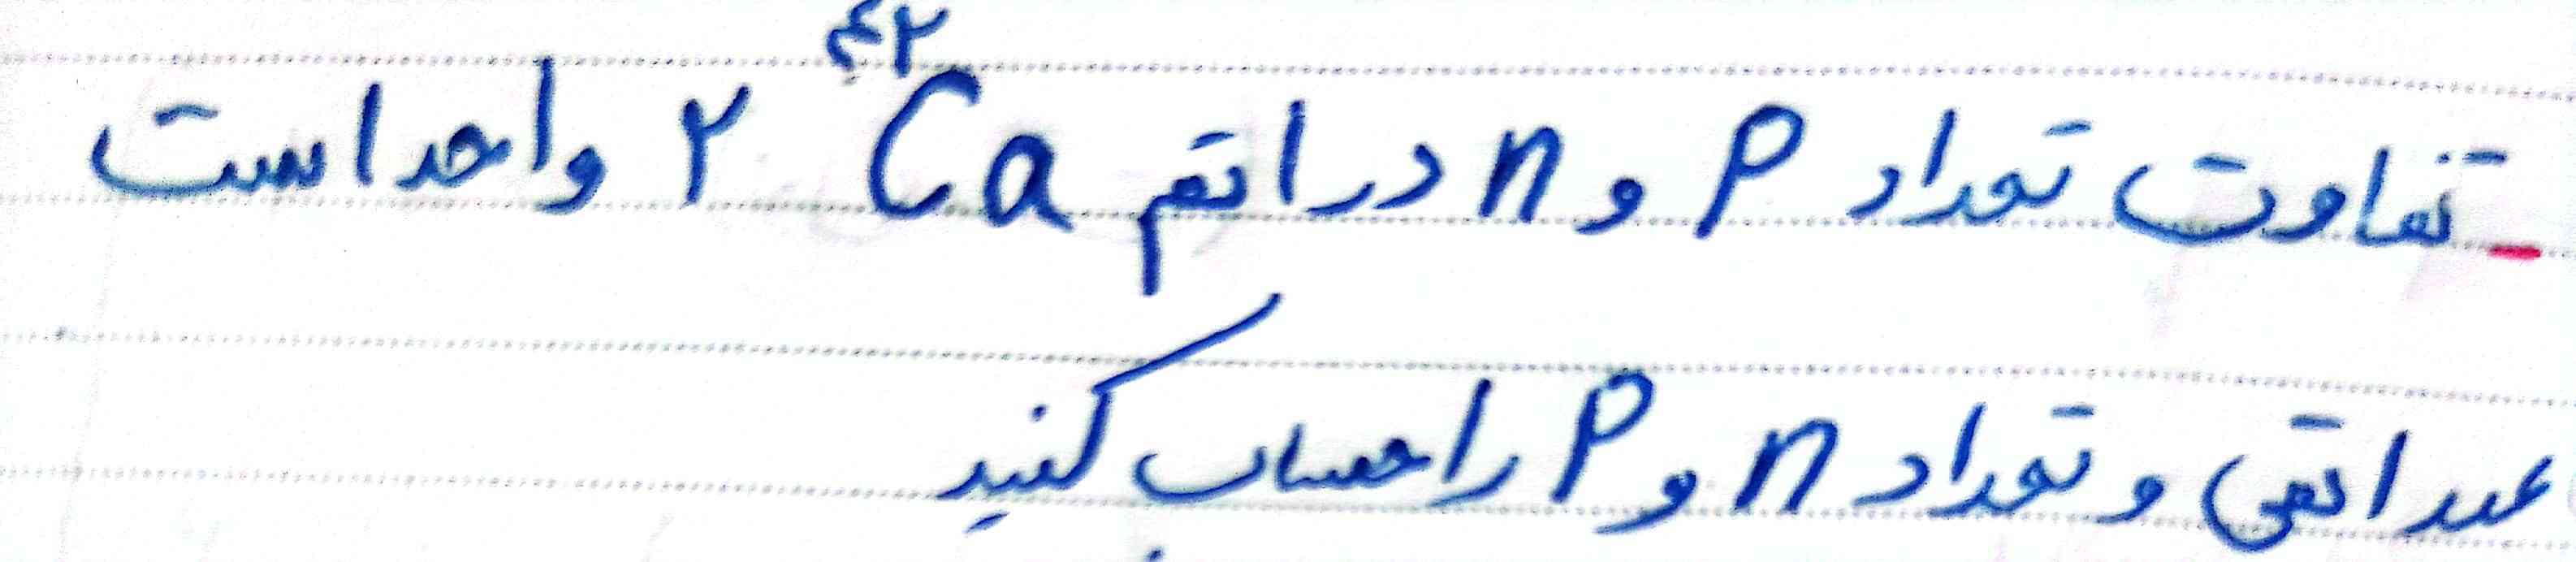 - تفاوت تعداد P و n در اتم ⁴²Ca ۲ واحد است
عدد اتمی و تعداد n و P را حساب کنید